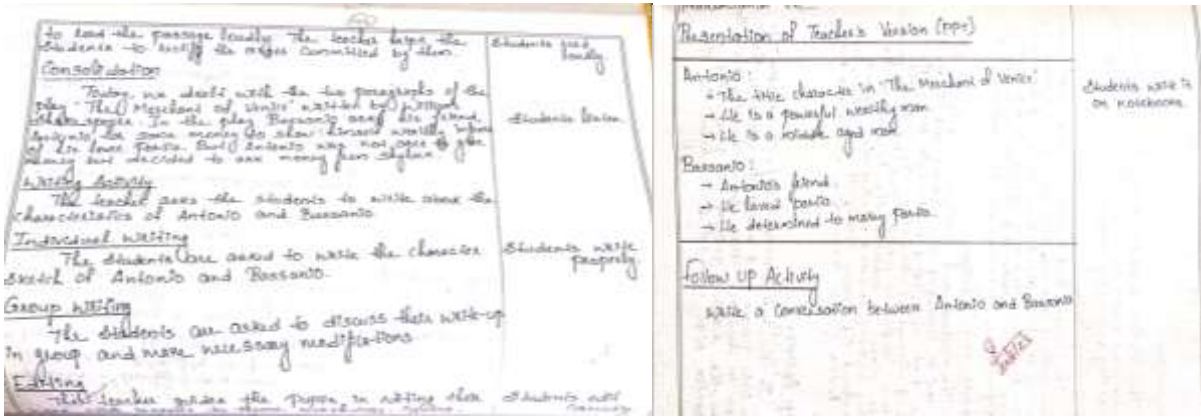 to read the passage loudly. The teacher helps the
students to rectify the errors committed by them.
Students read
loudly
Consolidation
Today, we dealt with the two paragraphs of the
play "The Merchant of Venice" written by William
Shakespeare. In the play Bassanio asks his friend
Antonio for some money to show himself wealthy infront
of his lover Portia. But Antonio was not able to give
money but decided to ask money from Shylock.
Students listen
Writing Activity
The teacher asks the students to write about the
characteristics of Antonio and Bassanio
Individual writing
The students are asked to write the character
sketch of Antonio and Bassanio.
Students write
properly.
Group writing
The students are asked to discuss their write-up
in group and make necessary modifications
Editing
The teacher guides the pupils in editing their
Students edit
Presentation of Teacher's Version (PPT)
Antonio:
→ The title character in "The Merchant of Venice"
→ He is a powerful wealthy man
→ He is a middle aged man
Students write it
on notebooks.
Bassanio:
→ Antonio's friend.
→ He loved Portia
→ He determined to marry Portia.
Follow up Activity
Write a conversation between Antonio and Bassanio